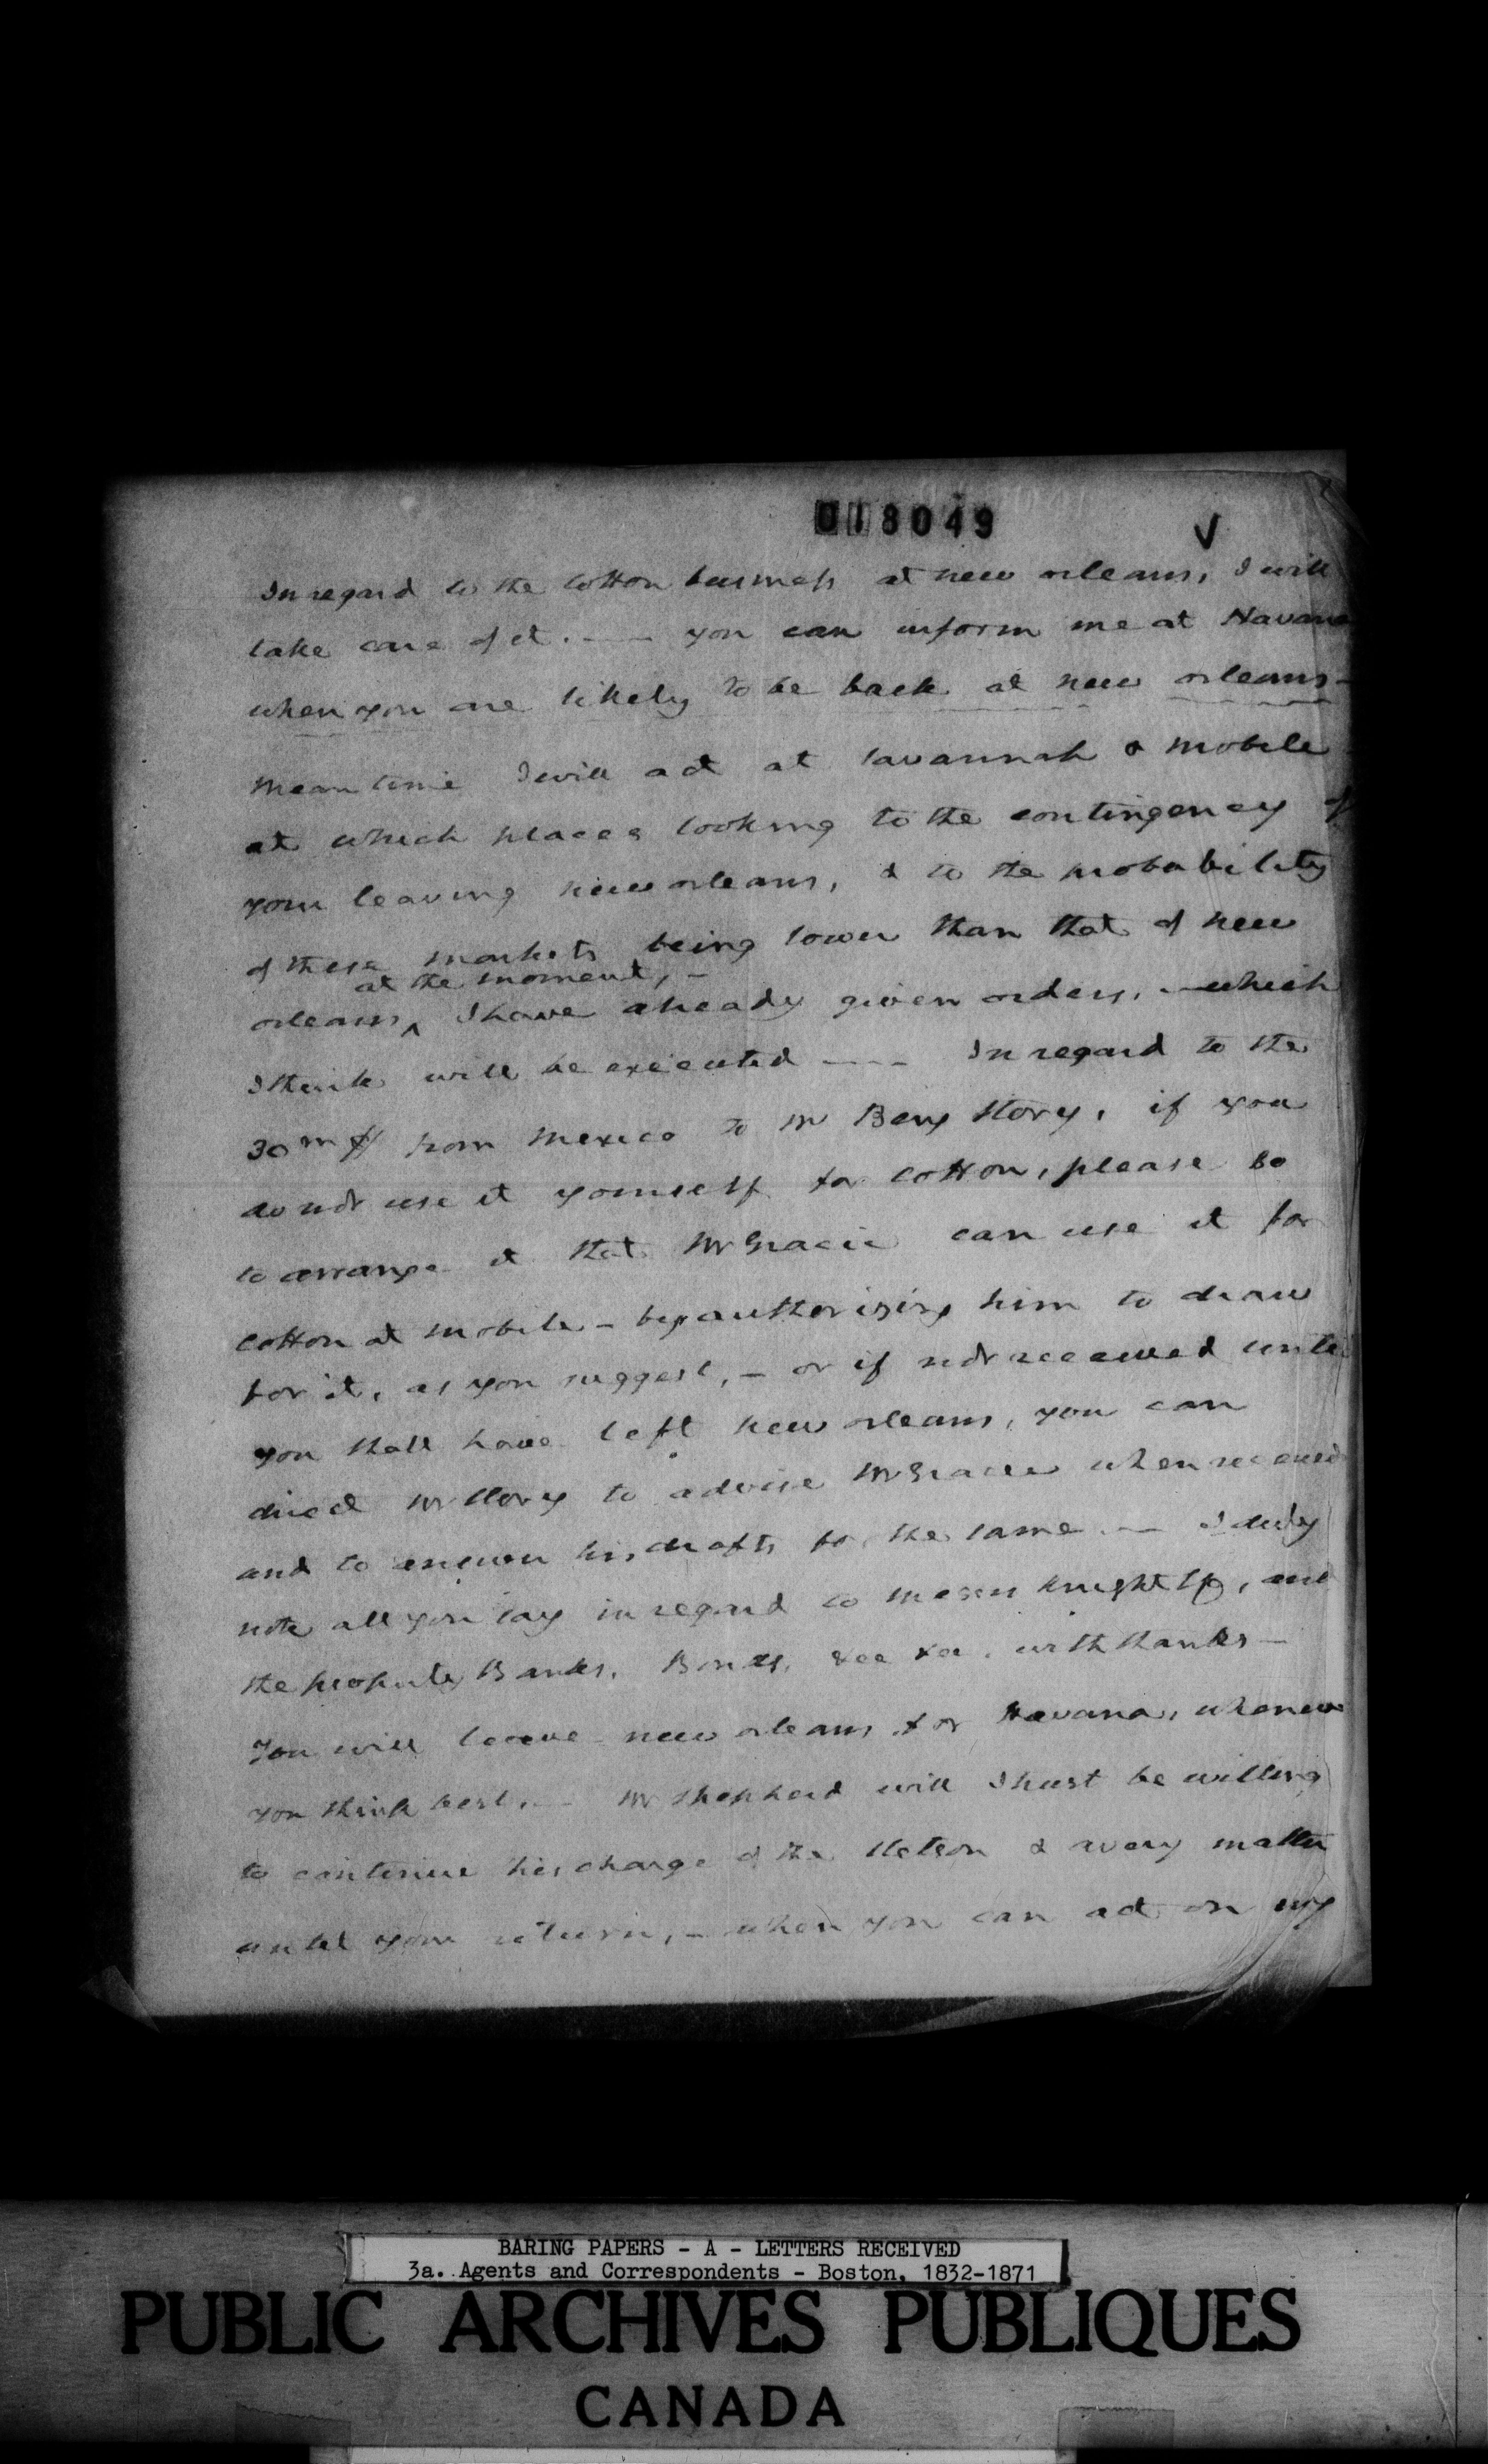 018049
In regard to the Cotton business at new orleans, I will
take care of it. —— you can inform me at Havana
when you are likely to be back at new orleans -
Mean time I will act at Savannah & Mobile
at which places looking to the contingency of
your leaving new orleans, & to the probability
of these markets being lower than that of new
at the moment, -
orleans ^ I have already given orders, - which
I think will be executed ---- In regard to the
30m $ from Mexico to Mr Benj Story, if you
do not use it yourself for cotton, please so
to arrange it that Mr Gracie can use it for
cotton at Mobile - by authorizing him to draw
for it, as you suggest, - or if not received until
you shall have left new orleans, you can
direct Mr Story to advise Mr Gracie when received
and to answer his drafts for the same. — I duly
note all you say in regard to Messrs Knight &
the property Banks, Bonds, &ca &ca, with thanks -
You will leave new orleans for Havana, whenever
you think best. — Mr Shepherd will I trust be willing
to continue his charge of the Stetson & Avery matter
until your return, - when you can act on my
BARING PAPERS - A - LETTERS RECEIVED
3a. Agents and Correspondents - Boston, 1832-1871
PUBLIC ARCHIVES PUBLIQUES
CANADA